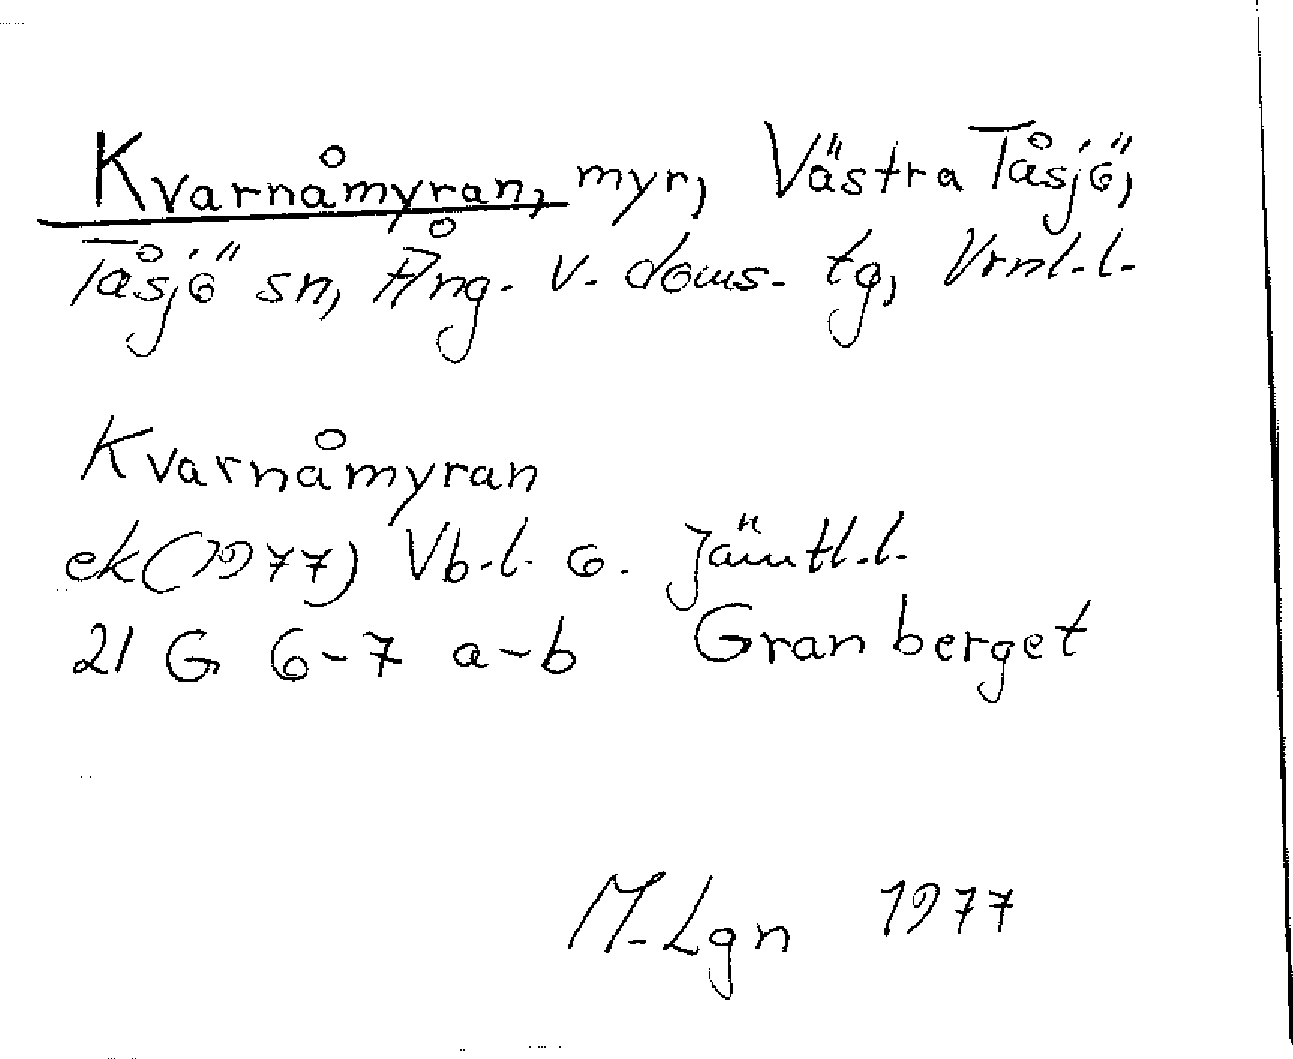 Kvarnåmyran, myr, Västra Tåsjö,
Tåsjö sn, Ång. v. doms. tg, Vrnl.l.
Kvarnåmyran
ek (1977) Vb.l. o. Jämtl.l.
21 G 6-7 a-b Granberget
M-Lgn 1977